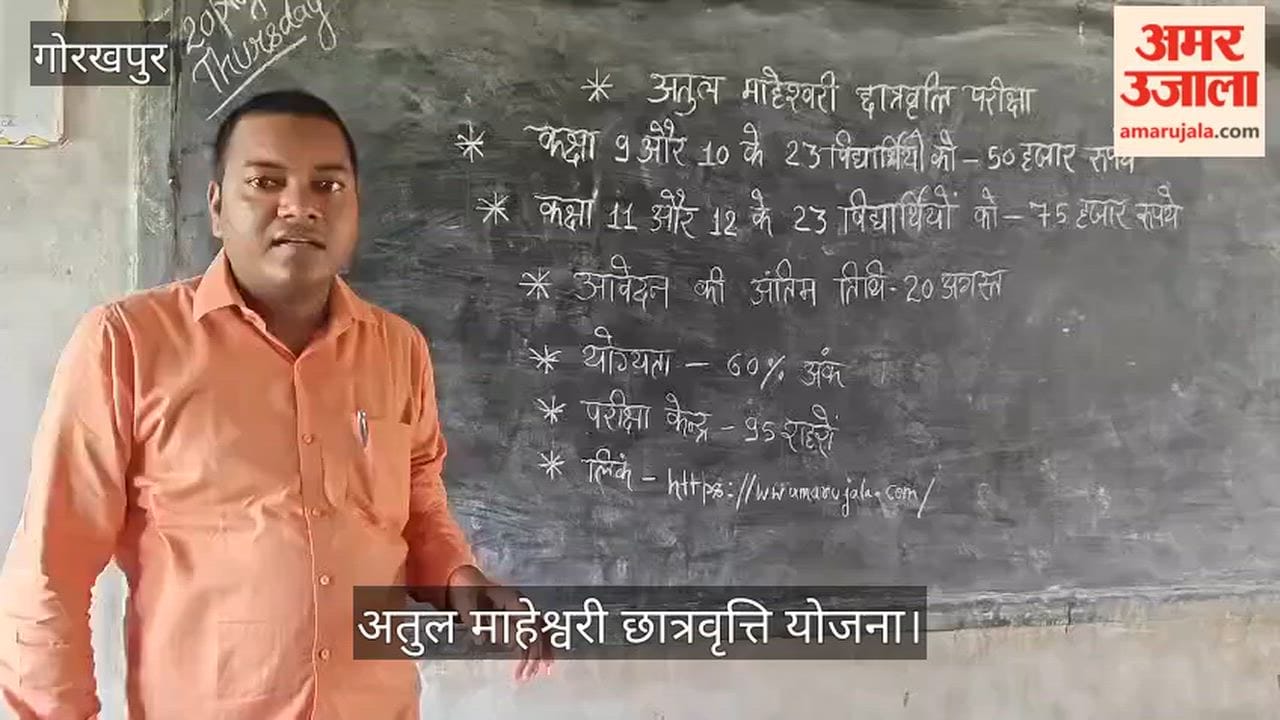 गोरखपुर
Thursday
अमर
उजाला
amarujala.com
* अतुल माहेश्वरी छात्रवृत्ति परीक्षा
* कक्षा 9 और 10 के 23 विद्यार्थियों को - 50 हजार रुपये
* कक्षा 11 और 12 के 23 विद्यार्थियों को - 75 हजार रुपये
* आवेदन की अंतिम तिथि - 20 अगस्त
* योग्यता - 60% अंक
* परीक्षा केन्द्र - 95 शहरों
* लिंक - https://wwwamarujala.com/
अतुल माहेश्वरी छात्रवृत्ति योजना।